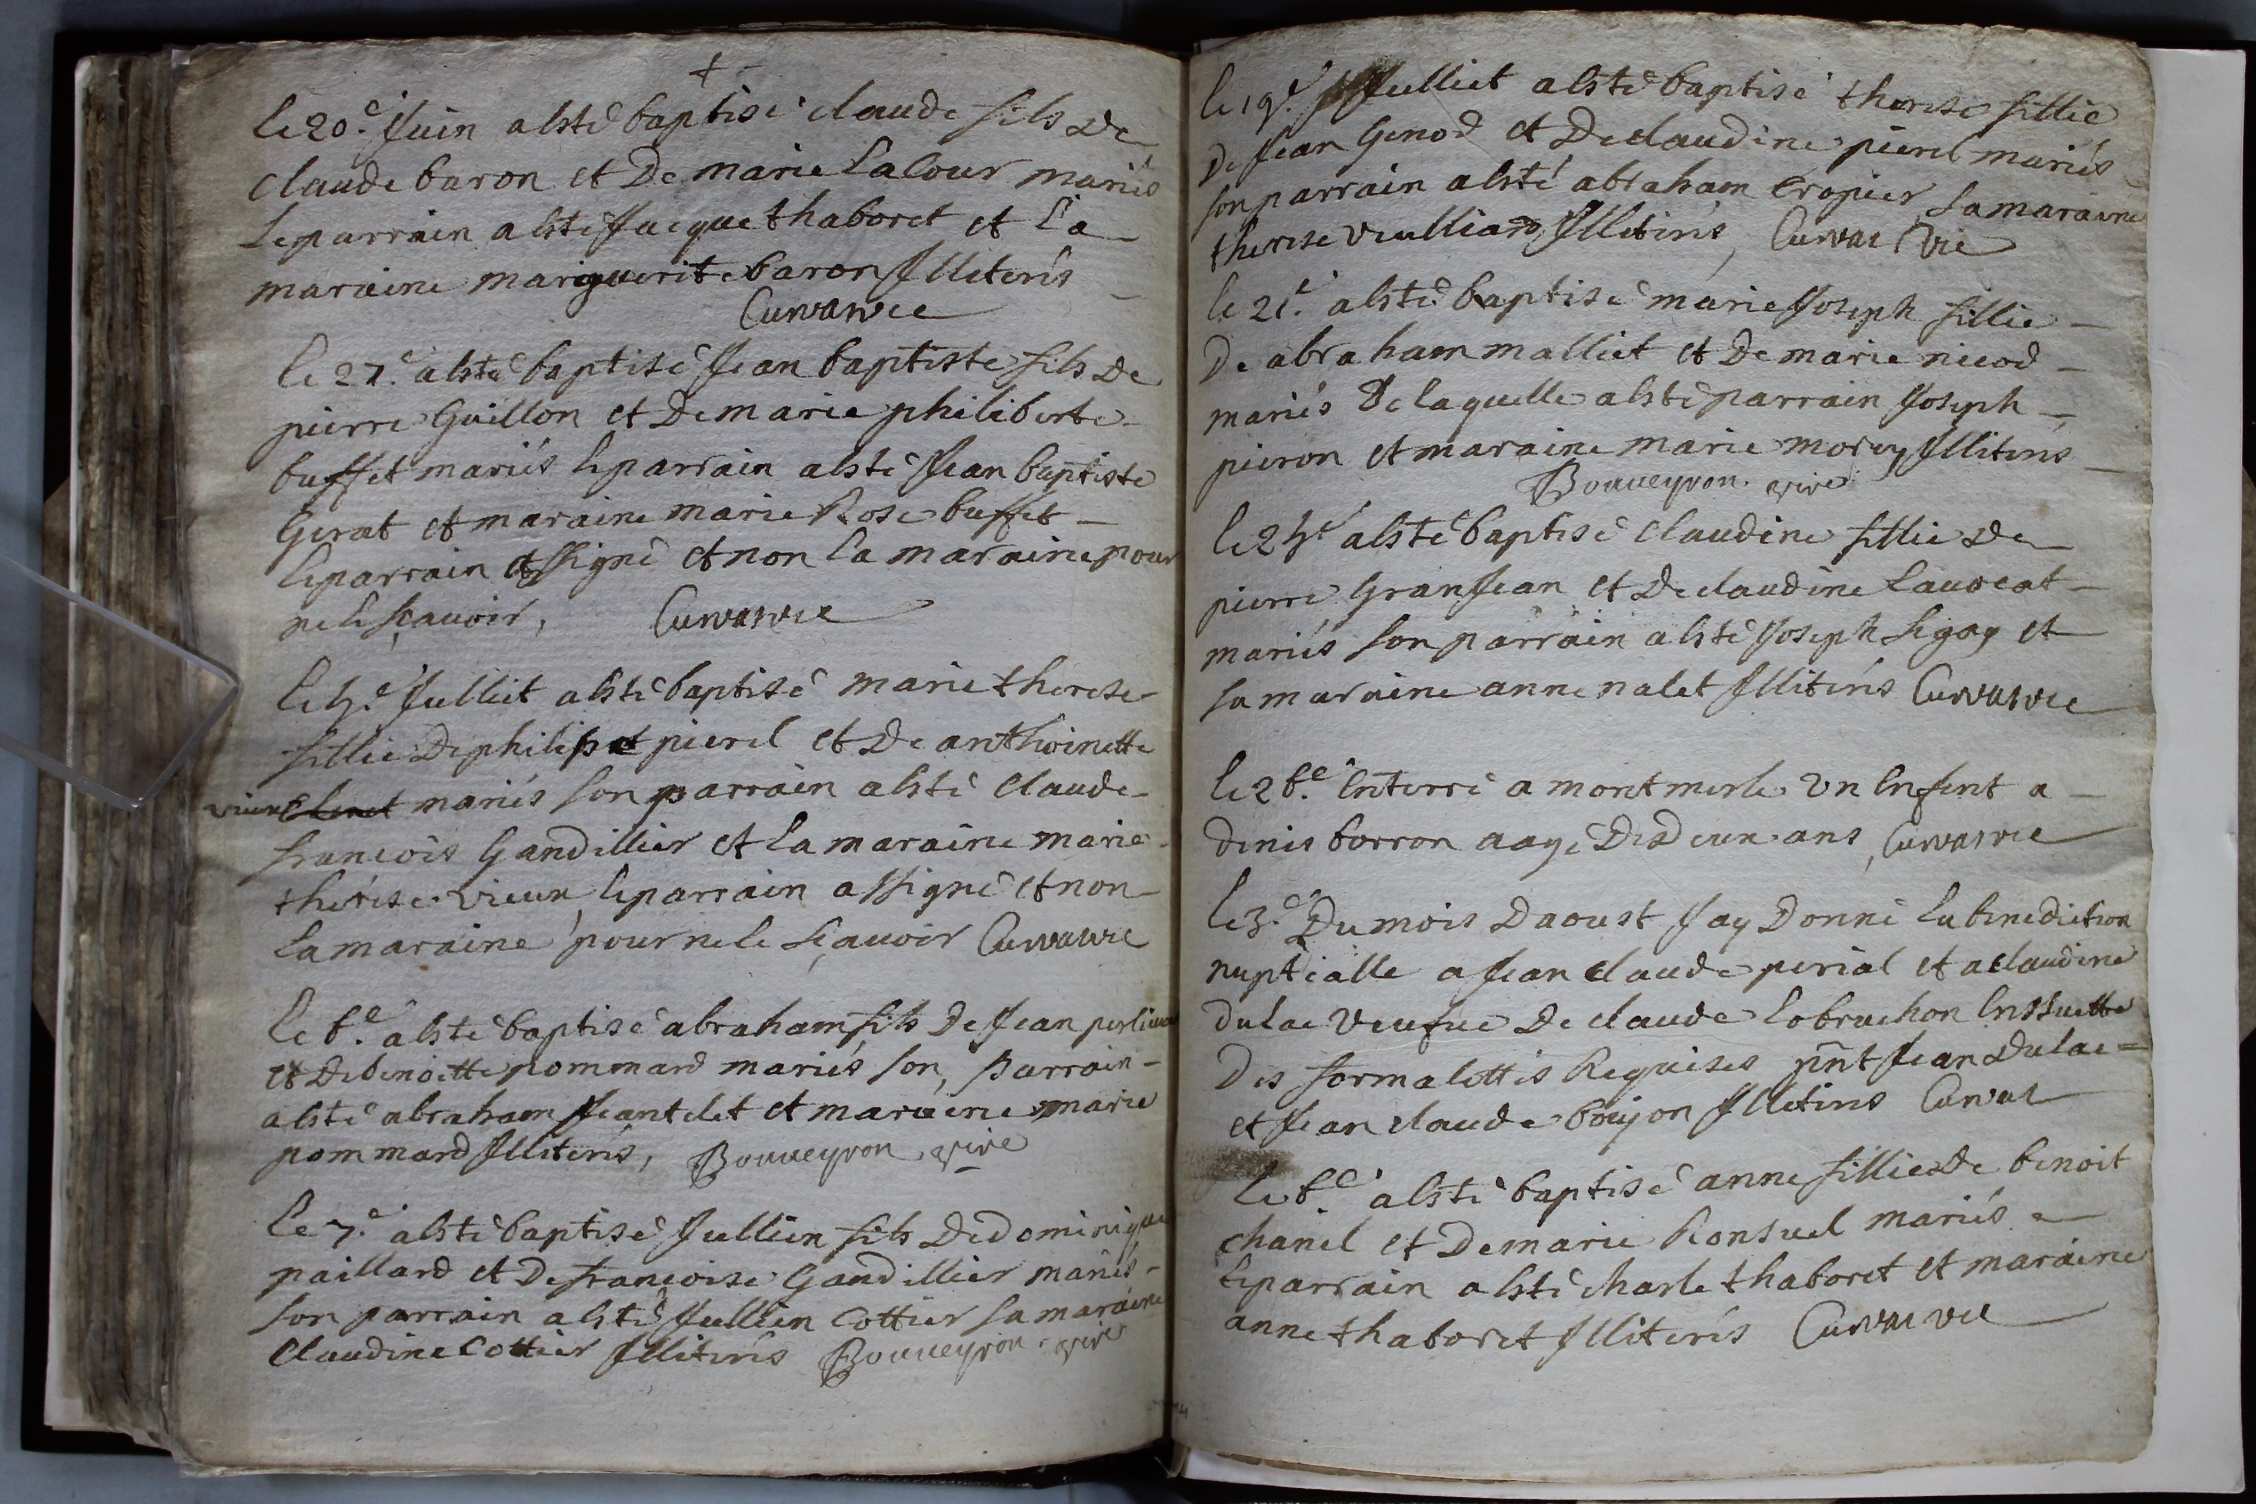 +
le 20.e Juin a lsté baptisé claude fils de
claude baron et De marie Lacour mariés
Le parrain a lsté Jacque thaboret et la
maraine marguerite baron Illiterés
Curvat vic
le 27.e a lsté baptisé Jean baptiste fils De
pierre Guillon et De marie philiberte
buffet mariés le parrain a lsté Jean baptiste
Gerat et maraine marie Rose buffet
le parrain a ssigné et non la maraine pour
ne le sçavoir, Curvat vic
le 4.e Julliet a lsté baptisé marie therese
fillie De philip pierel et De anthoinette
vieux mariés son parrain a lsté Claude
francois Gandillier et la maraine marie
therese vieux, le parrain a ssigné et non
la maraine pour ne le sçavoir Curvat vic
Le 6.e a lsté baptisé abraham fils De Jean
et De benoitte pommard mariés son, parrain
a lsté abraham Jeantelet et maraine marie
pommard Illiterés, Bouveyron vire
Le 7.e a lsté baptisé Jullien fils De dominique
paillard et De francoise Gandillier mariés
son parrain a lsté Jullien Cottier sa maraine
Claudine Cottier Illiterés Bouveyron vire
le 19.e Julliet a lsté baptisé therese fillie
De Jean Genod et De claudine pierel mariés
son parrain a lsté abraham Cropier sa maraine
therese vulliard Illiterés, Curvat vic
le 21.e a lsté baptisé marie Joseph fillie
De abraham malliet et De marie nicod
mariés De laquelle a lsté parrain Joseph
pieron et maraine marie morey Illiterés
Bouveyron vire
le 24.e a lsté baptisé Claudine fillie de
pierre GranJean et De claudine Lauocat
mariés son parrain a lsté Joseph Legay et
sa maraine anne nalet Illiterés Curvat vic
le 26.e Enterré a montmerle un Enfent a
denis borron aagé Des deux ans, Curvat vic
le 3.e Du mois Daoust Jay Donné la benediction
nuptialle a Jean claude perial et a claudine
dulac veufue De claude Lobruchon Enssuitte
Des formalettés Requises pnt Jean dulac
et Jean claude boyjon Illiterés Curvat
Le 6.e a lsté baptisé anne fillie de benoit
chanel et De marie Ronsuel mariés
le parrain a lsté charle thaboret et maraine
anne thaboret Illiterés Curvat vic